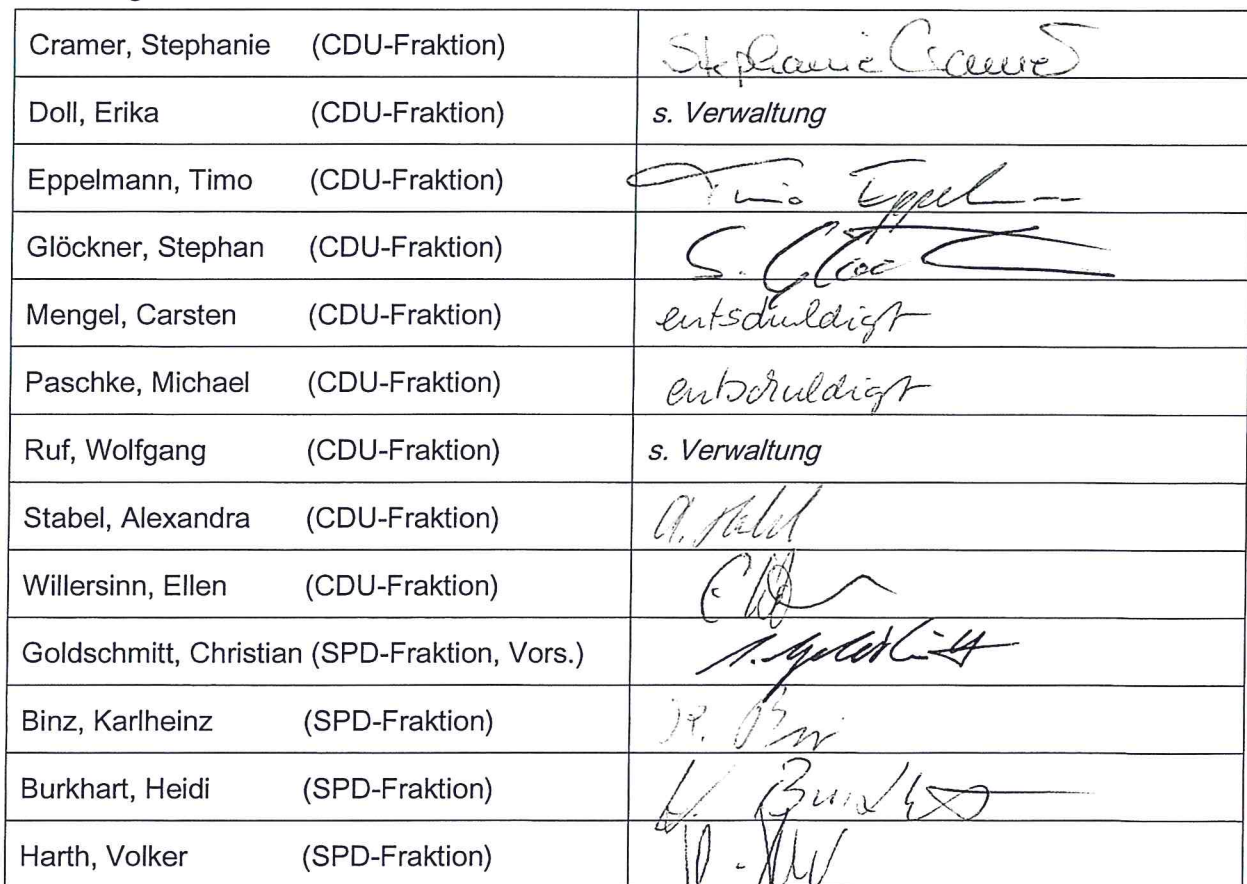 Cramer, Stephanie (CDU-Fraktion) Stephanie Cramer
Doll, Erika (CDU-Fraktion) s. Verwaltung
Eppelmann, Timo (CDU-Fraktion) Timo Eppel
Glöckner, Stephan (CDU-Fraktion) S.
Mengel, Carsten (CDU-Fraktion) entschuldigt
Paschke, Michael (CDU-Fraktion) entschuldigt
Ruf, Wolfgang (CDU-Fraktion) s. Verwaltung
Stabel, Alexandra (CDU-Fraktion)
Willersinn, Ellen (CDU-Fraktion)
Goldschmitt, Christian (SPD-Fraktion, Vors.)
Binz, Karlheinz (SPD-Fraktion)
Burkhart, Heidi (SPD-Fraktion)
Harth, Volker (SPD-Fraktion)